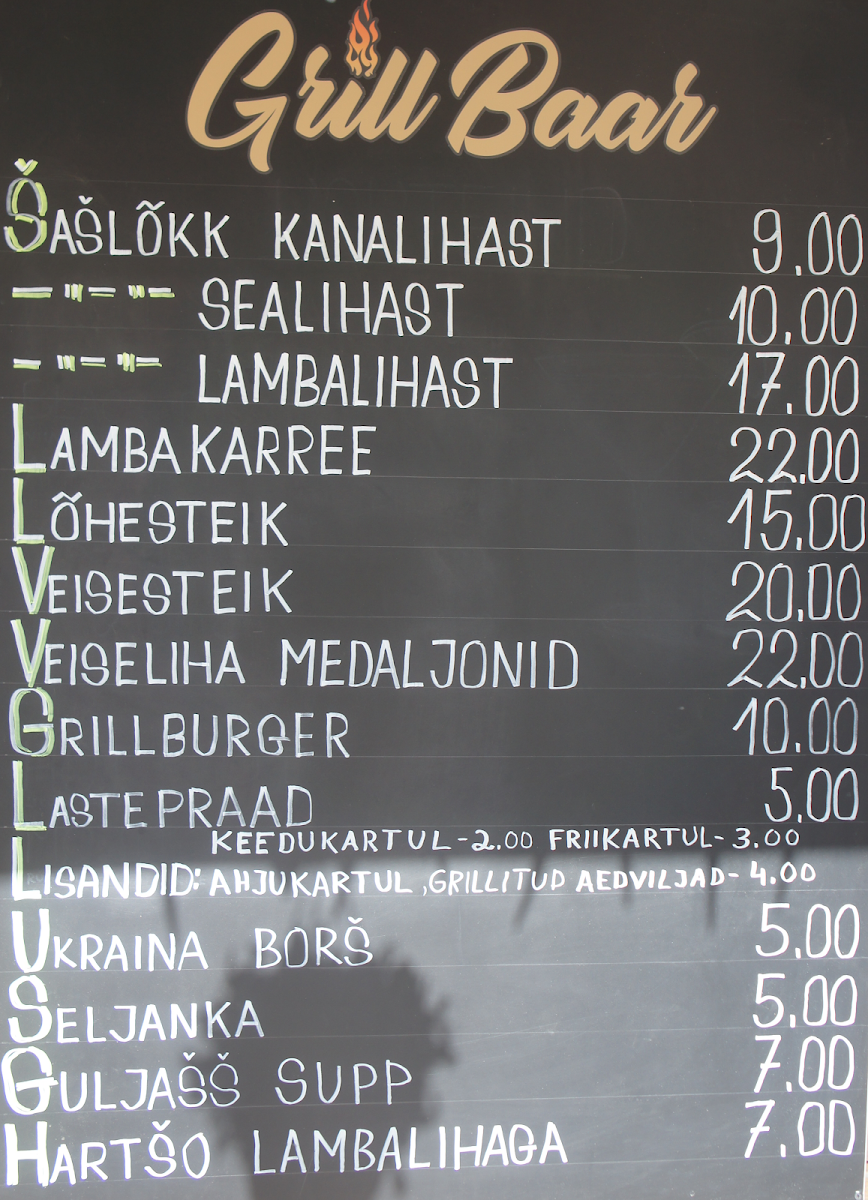 Grill Baar
ŠAŠLÕKK KANALIHAST 9.00
— " — " — SEALIHAST 10.00
— " — " — LAMBALIHAST 17.00
LAMBAKARREE 22.00
LÕHESTEIK 15.00
VEISESTEIK 20.00
VEISELIHA MEDALJONID 22.00
GRILLBURGER 10.00
LASTEPRAAD 5.00
KEEDUKARTUL-2.00 FRIIKARTUL-3.00
LISANDID: AHJUKARTUL, GRILLITUD AEDVILJAD-4.00
UKRAINA BORŠ 5.00
SELJANKA 5.00
GULJAŠŠ SUPP 7.00
HARTŠO LAMBALIHAGA 7.00